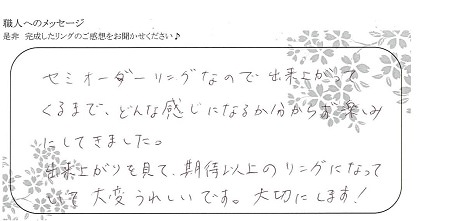 職人へのメッセージ
是非 完成したリングのご感想をお聞かせください♪
セミオーダーリングなので出来上がって
くるまで、どんな感じになるか分からず楽しみ
にしてきました。
出来上がりを見て、期待以上のリングになって
いて大変うれしいです。大切にします!